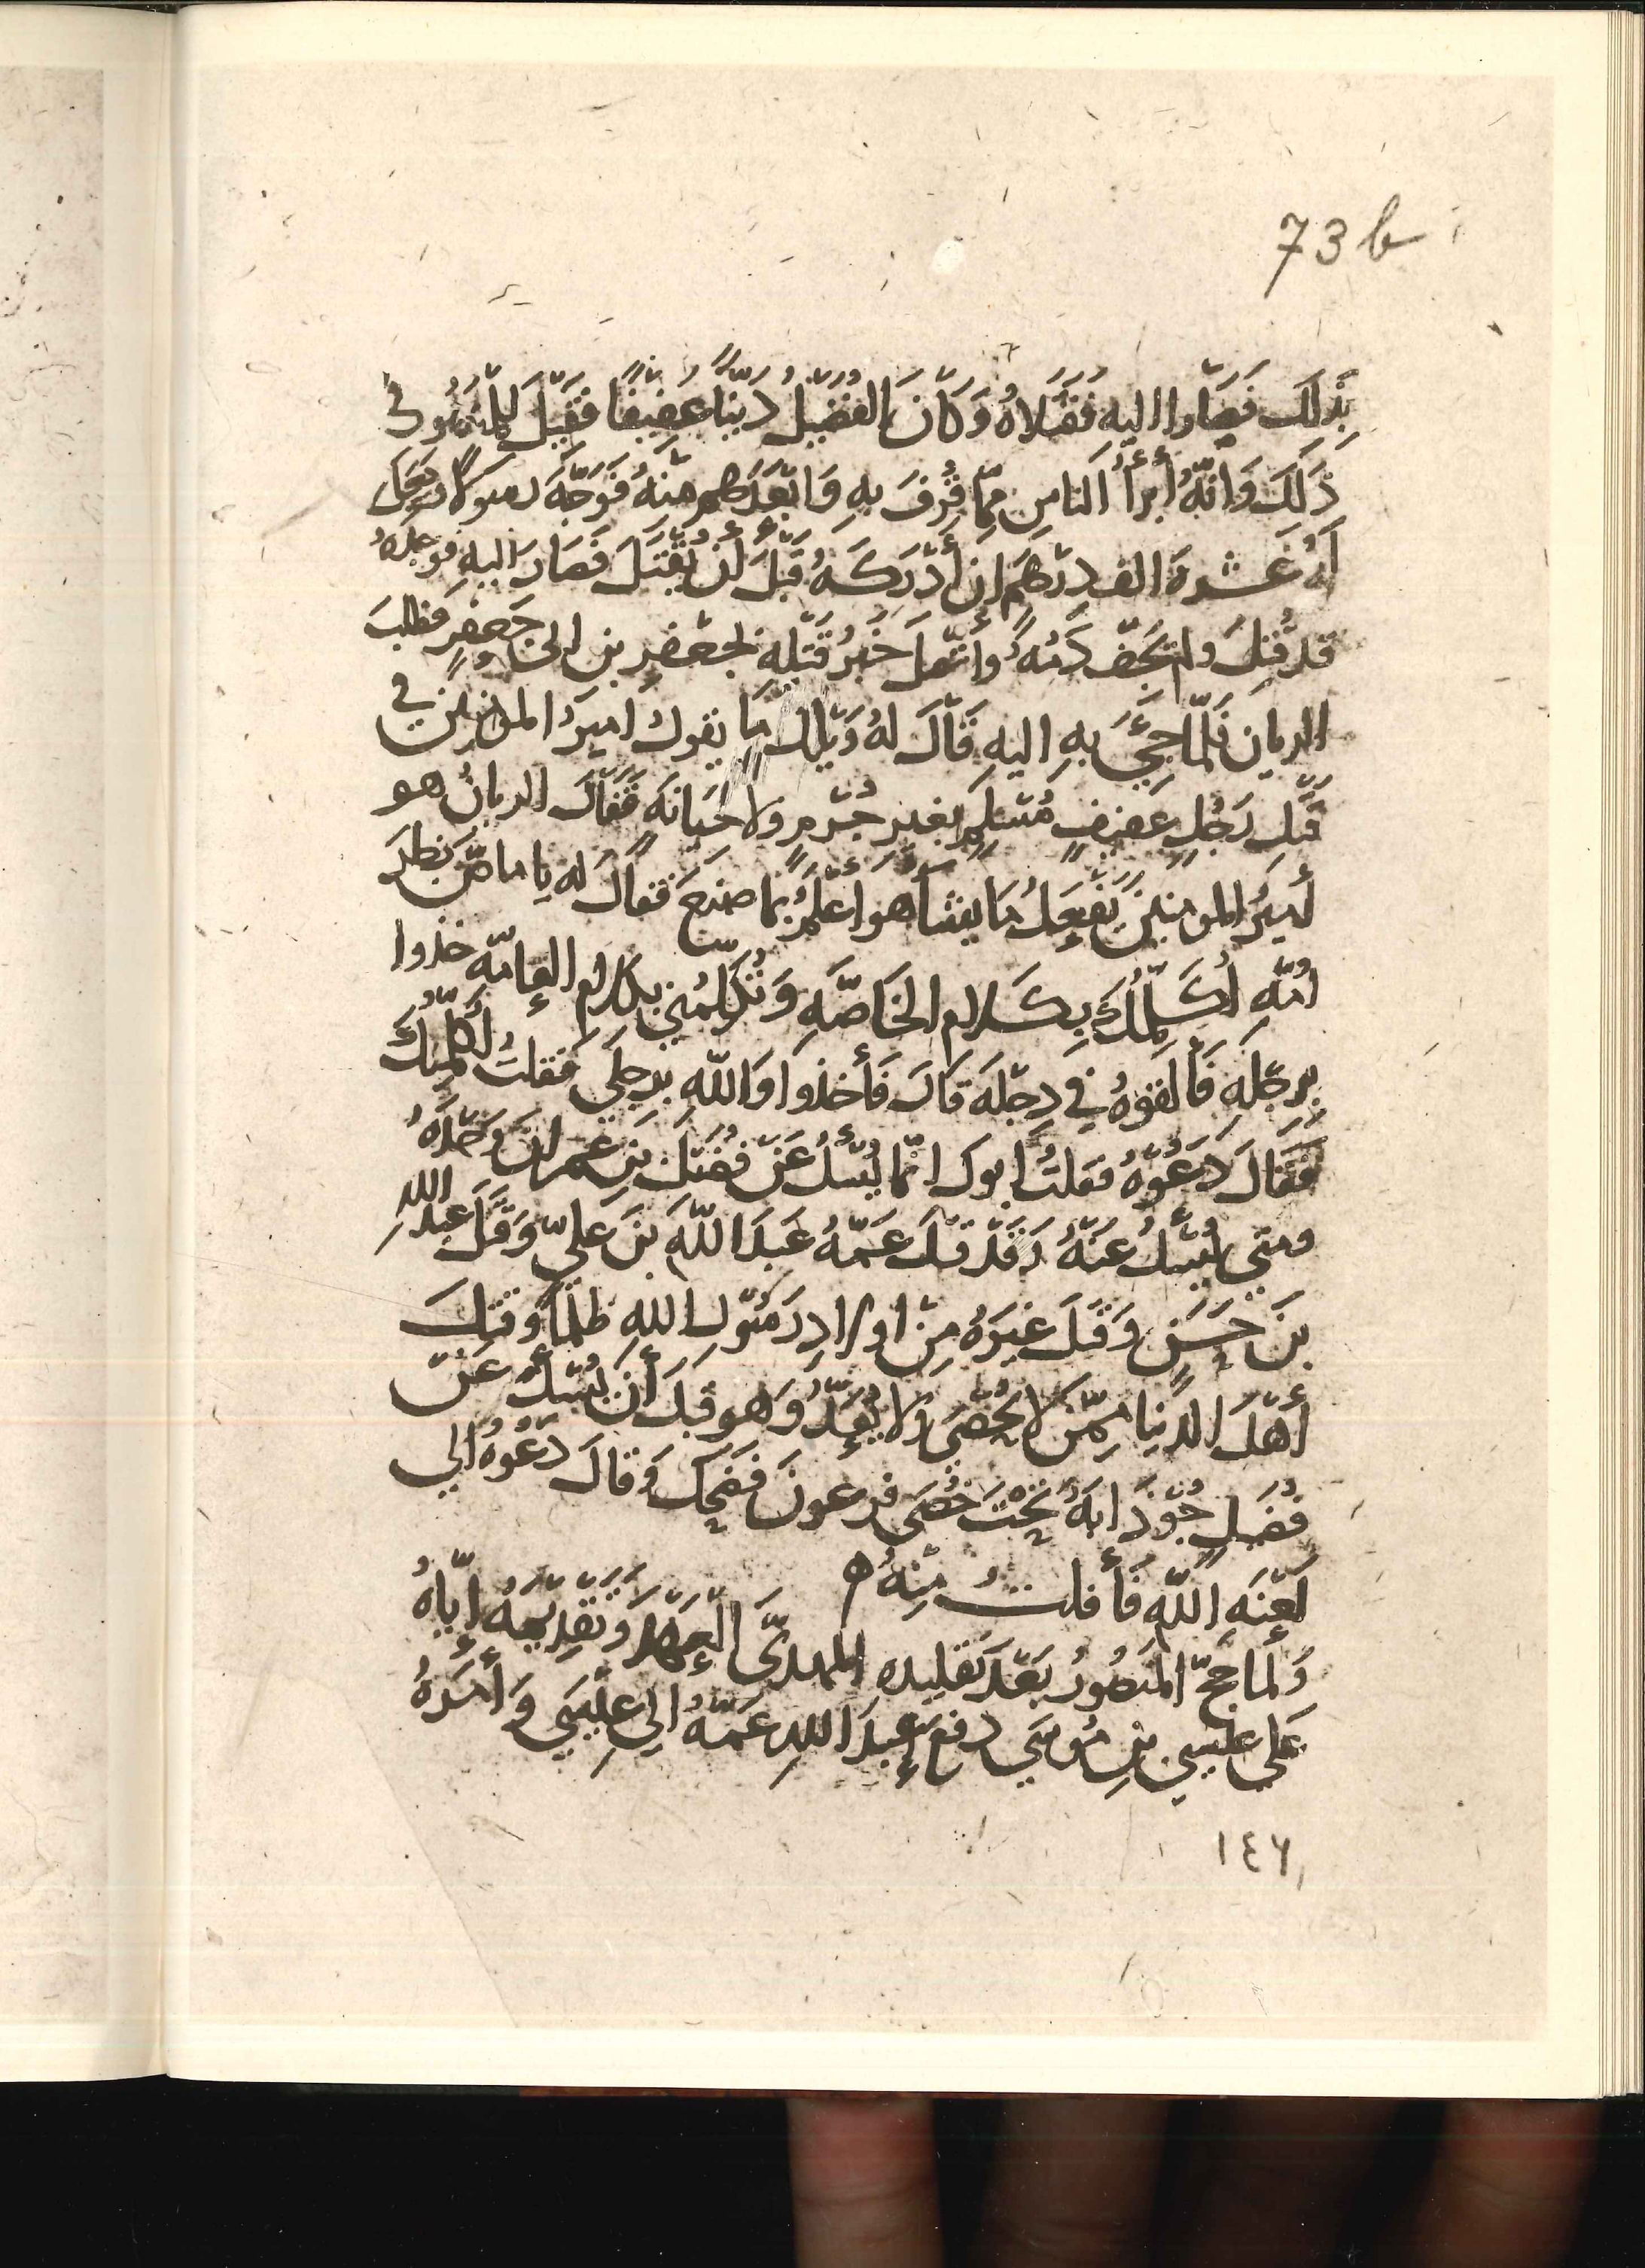 73 b
بِذَلكَ فَصَاروا اليهِ فَقَتَلاهُ وَكَانَ الفُضَيْلُ دَيِّنًا عَفِيفًا فَقِيلَ لِلمَنصُورِ في
ذَلكَ وَانّهُ أبرأُ الناسِ مِمّا قُرِفَ بهِ وَابْعَدَهم منهُ فَوَجّهَ رسولًا وجعل
لَهُ عَشرةَ الف دِرْهَمٍ ان أدْرَكَهُ قَبْلَ أنْ يُقْتَلَ فَصَارَ اليهِ فوجدهُ
قد قُتِلَ ولم يَجفّ دَمُهُ وَاتّصلَ خَبرُ قَتْلِهِ لجعْفرِ بن ابي جَعفرٍ فطلبَ
الريان فَلمّا جِيَ بهِ اليهِ قَالَ لهُ وَيْلك مَا يقول اميرُ المومنين في
قَتْلِ رَجُلٍ عَفيفٍ مُسْلِمٍ بغيرِ جُرْمٍ ولا خيانةٍ فَقالَ الريانُ هو
أميرُ المومنين يَفْعلُ مَا يشا هوَ أعْلَمُ بما صنعَ فقالَ له يا ماصّ بَظْرَ
امّهِ أكَلّمُكَ بِكَلامِ الخاصّهِ وَتُكَلّمُني بكلامِ العامّه خذوا
بِرِجْلِهِ فَألقوهُ في دِجْلَه قالَ فَأخذوا وَاللّه بِرجلي فقلتُ أكلّمُكَ
فَقَالَ دَعُوْهُ فقلتُ ابوك انّما يُسْئَلُ عَنْ فُضَيْلِ بنِ عمرانَ وَحْدَهُ
ومتي يُسْئَلُ عَنهُ وَقَدْ قتلَ عمّهُ عَبدَ اللّهِ بنَ عليّ وَقتَلَ عبدَ اللهِ
بنَ حَسَنٍ وَقتَلَ غيرهُ مِنْ اولادِ رَسُولِ اللهِ ظُلمًا وَقتلَ
أهْلَ الدنيا مِمّنْ لا يُحْصَي ولا يُعَدُّ وَهو قبلَ أنْ يُسْئَلَ عَنْ
فُضَيلٍ جُوْذَابَهُ تَحْتَ خُصَي فرعونَ فضحك وَقالَ دَعُوهُ الي
لَعْنَهِ اللّه فأفلتُ مِنْهُ ه
وَلما حجّ المنصُورُ بَعْدَ تقليدهِ المهديَّ العهدَ وَتقدِيمهُ ايّاهُ
عَلَي عيسي بنِ مُوسَي دفعَ عبدَ اللهِ عَمّهُ الي عِيْسَي وَأمَرَهُ
١٤٦